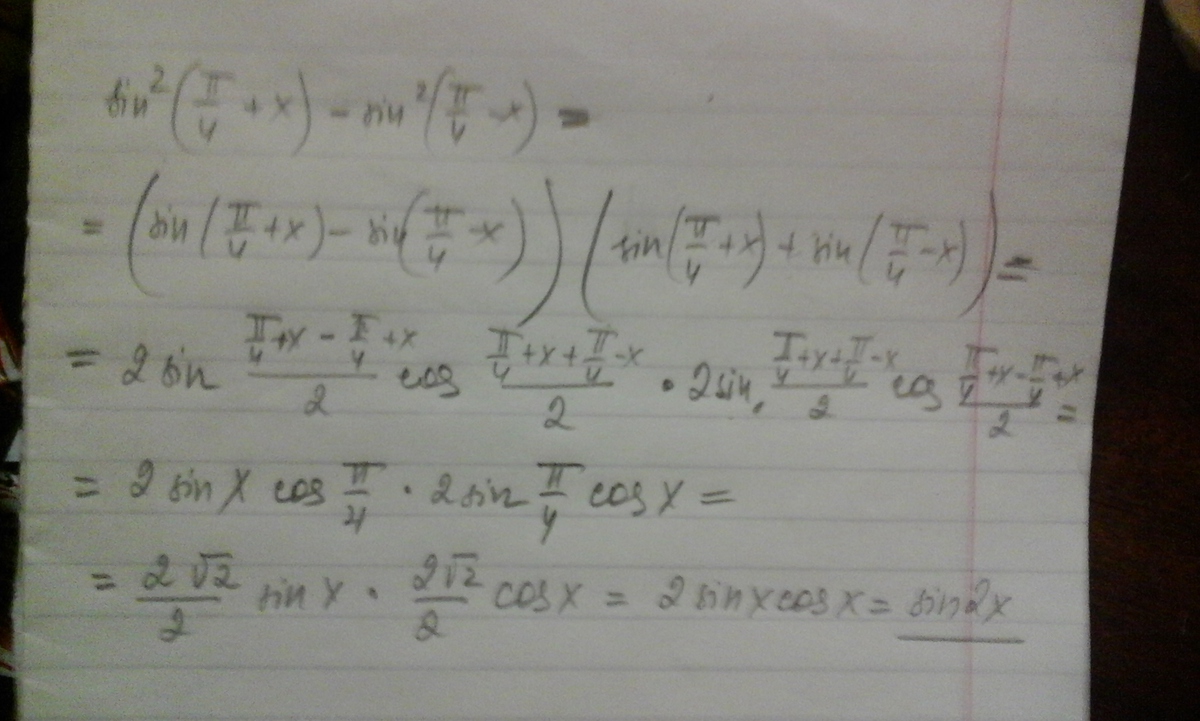 sin²(π/4 + x) - sin²(π/4 - x) =
= (sin(π/4 + x) - sin(π/4 - x)) (sin(π/4 + x) + sin(π/4 - x)) =
= 2 sin (π/4 + x - π/4 + x)/2 cos (π/4 + x + π/4 - x)/2 · 2 sin (π/4 + x + π/4 - x)/2 cos (π/4 + x - π/4 + x)/2 =
= 2 sin x cos π/4 · 2 sin π/4 cos x =
= 2√2/2 sin x · 2√2/2 cos x = 2 sin x cos x = sin 2x